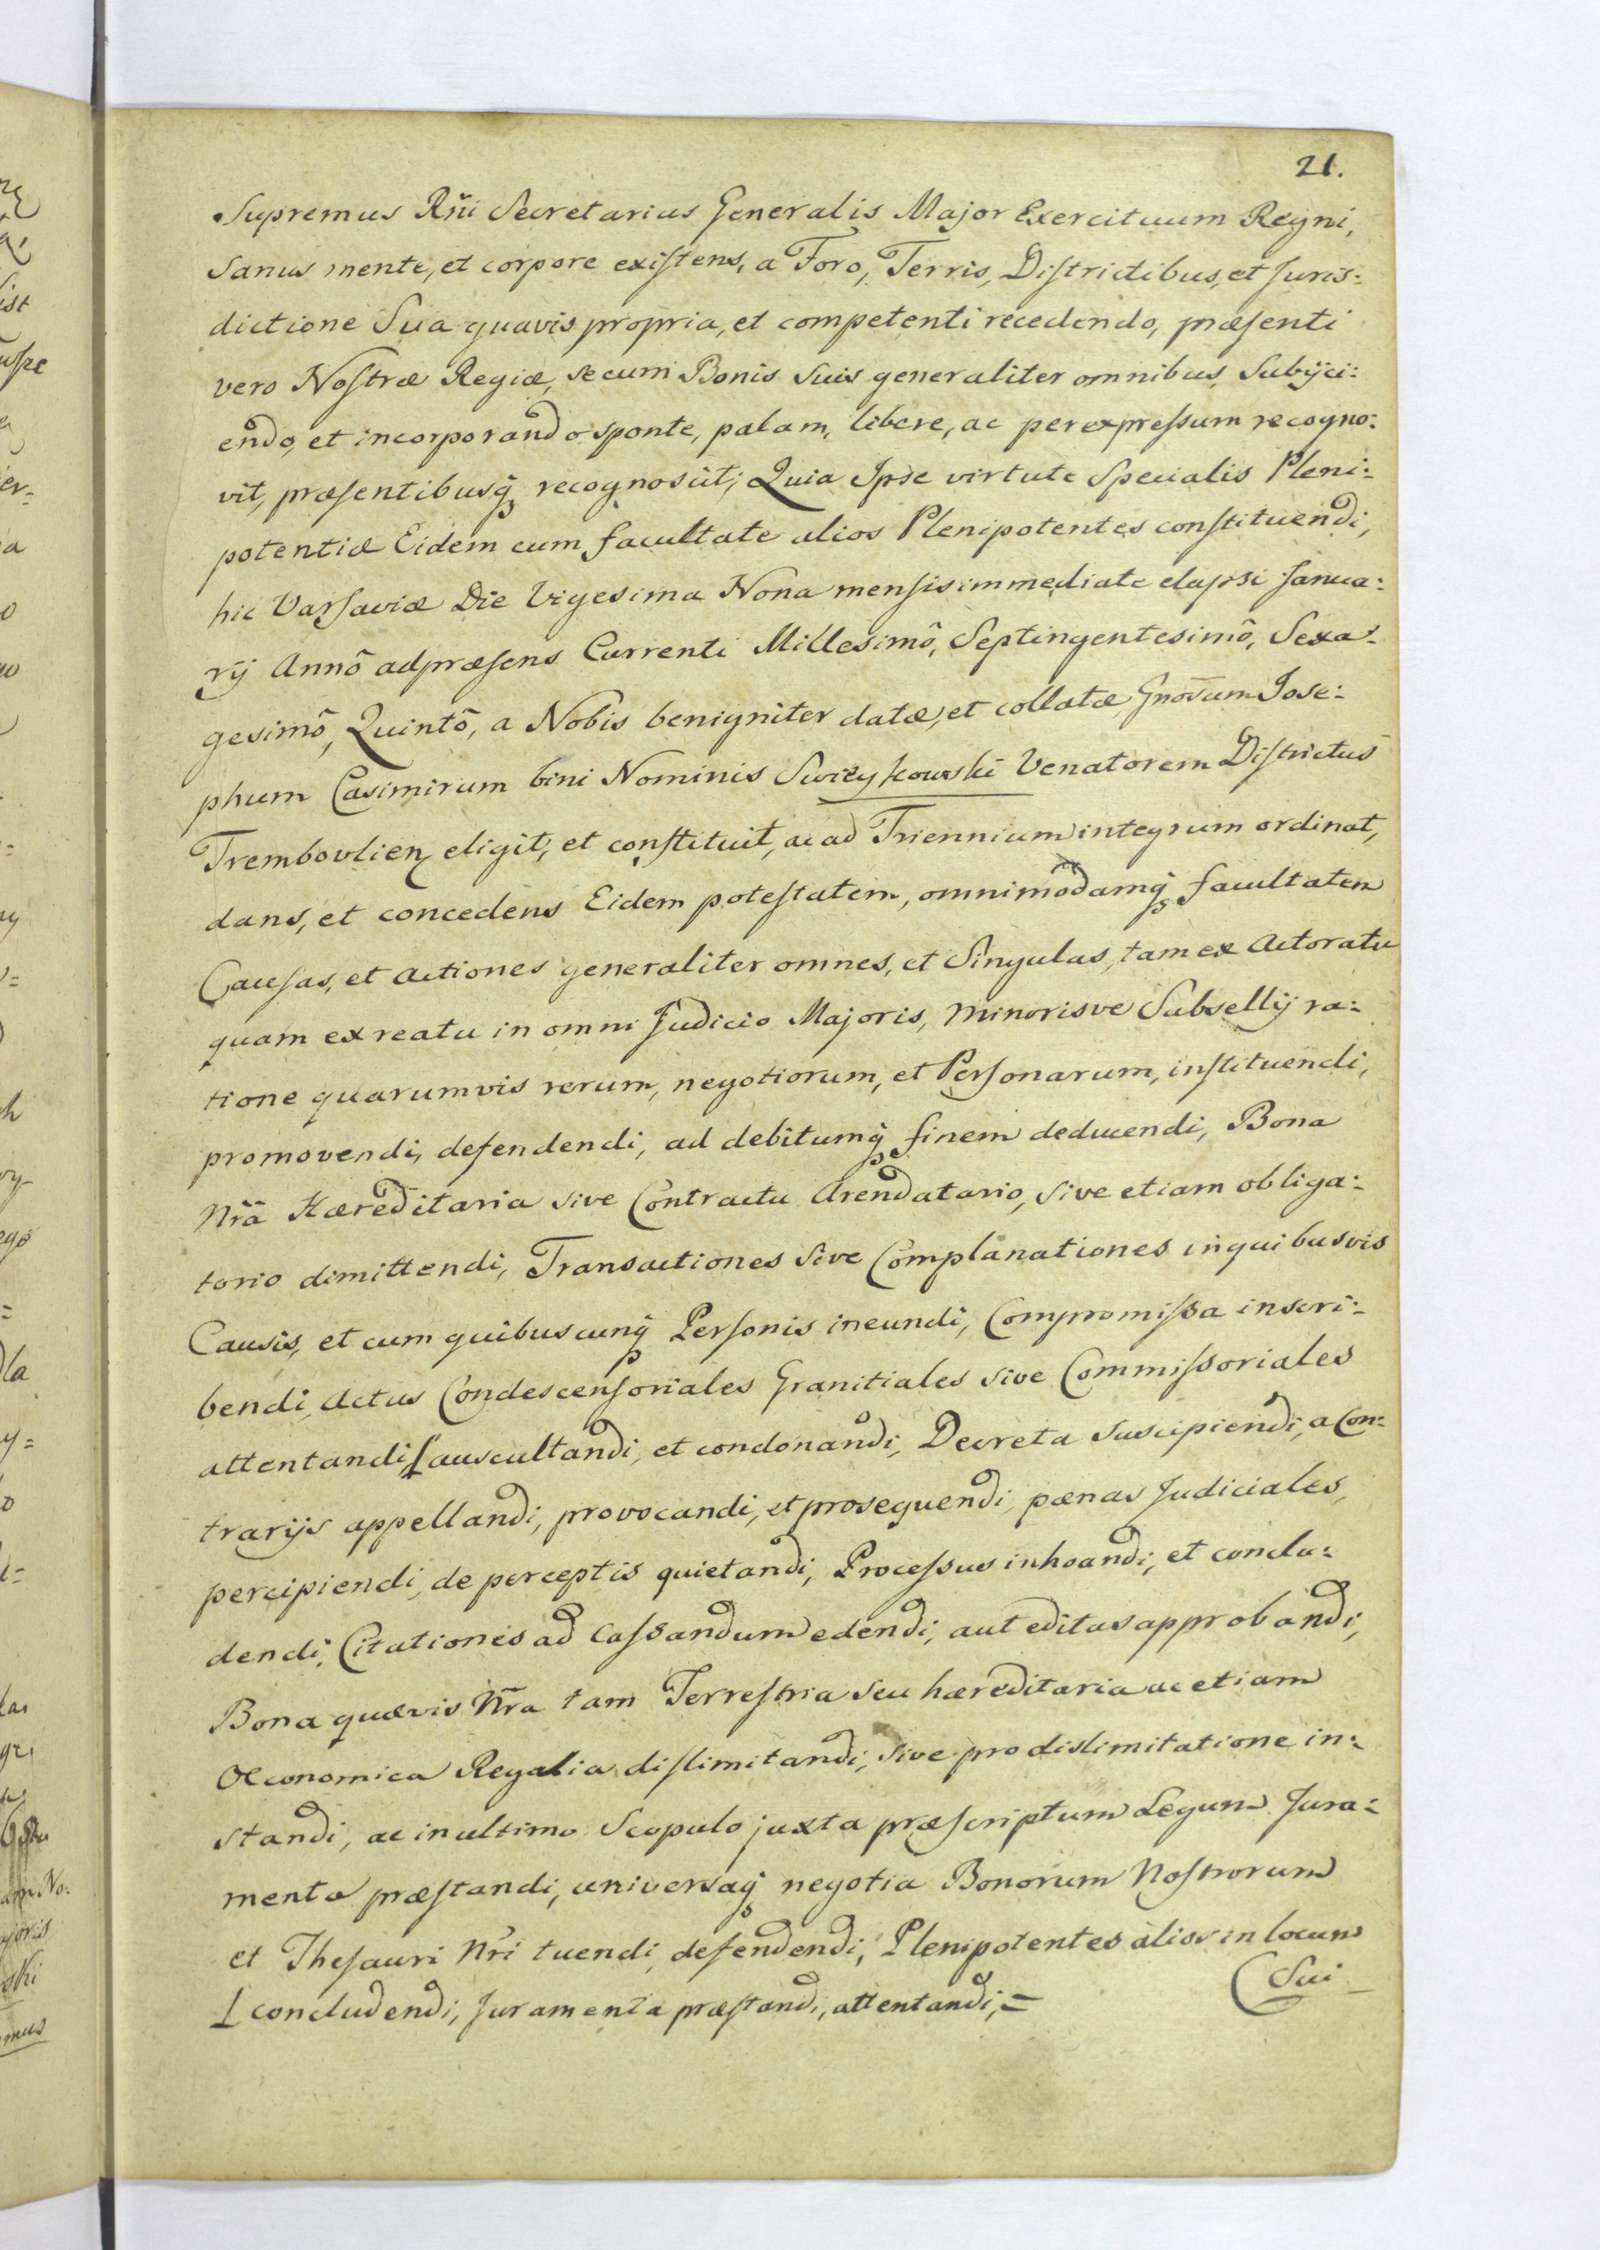 21.
Supremus Rñi Secretarius Generalis Major Exercituum Regni,
Sanus mente, et corpore existens, a Foro, Terris, Districtibus, et Juris=
dictione Sua quavis propria, et competenti recedendo, præsenti
vero Nostræ Regiæ, se cum Bonis Suis generaliter omnibus Subÿci=
endo, et incorporando sponte, palam, libere, ac per expressum recogno=
vit, præsentibusq; recognoscit; Quia Ipse virtute Specialis Pleni=
potentiæ Eidem cum facultate alios Plenipotentes constituendi,
hic Varsaviæ Die Vigesima Nona mensis immediate elapsi Janua=
rÿ Annô ad præsens Currenti Millesimô, Septingentesimô, Sexa=
gesimô, Quintô, a Nobis benigniter datæ, et collatæ, Gnosum Jose=
phum Casimirum bini Nominis Swizykowski Venatorem Districtus
Trembovlien eligit, et constituit, ac ad Triennium integrum ordinat,
dans, et concedens Eidem potestatem, omnimodamq; facultatem
Causas, et Actiones generaliter omnes, et Singulas, tam ex Actoratu
quam ex reatu in omni Judicio Majoris, Minorisve Subsellÿ ra=
tione quarumvis rerum, negotiorum, et Personarum, instituendi,
promovendi, defendendi, ad debitumq; finem deducendi, Bona
Nrã Hæreditaria sive Contractu Arendatario, sive etiam obliga=
torio dimittendi, Transactiones sive Complanationes in quibusvis
Causis, et cum quibuscunq; Personis ineundi, Compromissa inscri=
bendi, Actus Condescensoriales Granitiales sive Commissoriales
attentandi ⌊auscultandi, et condonandi, Decreta Suscipiendi, a Con=
trarÿs appellandi, provocandi, et prosequendi, pænas Judiciales,
percipiendi, de perceptis quietandi, Processus inhoandi, et conclu=
dendi, Citationes ad Cassandum edendi, aut editas approbandi,
Bona quævis Nrã tam Terrestria seu hæreditaria ac etiam
Oeconomica Regalia dislimitandi, sive pro dislimitatione in=
standi, ac in ultimo Scopulo juxta præscriptum Legum Jura=
menta præstandi, universaq; negotia Bonorum Nostrorum
et Thesauri Nri tuendi, defendendi, Plenipotentes alios in locum
Sui
⌊ concludendi, Juramenta præstandi, attentandi, =